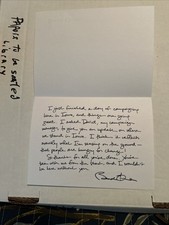 Papers to be seated
Library
I just finished a day of campaigning
here in Iowa, and things are going
good. I asked David, my campaign
manager, to give you an update on where
we stand in Iowa. I think it reflects
exactly what I'm sensing on the ground —
that people are hungry for change!
So thanks for all you've done. You've
been with us from the start, and I wouldn't
be here without you.